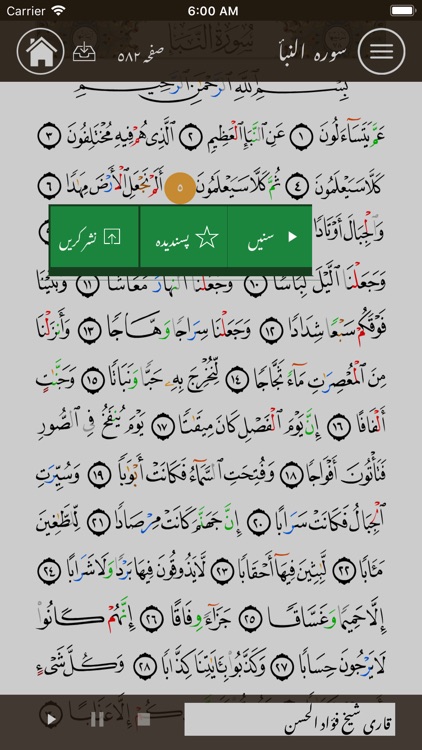 Carrier 6:00 AM
سورہ النبأ صفحہ ۵۸۲
بِسْمِ اللَّهِ الرَّحْمَٰنِ الرَّحِيمِ
عَمَّ يَتَسَاءَلُونَ ١ عَنِ النَّبَإِ الْعَظِيمِ ٢ الَّذِي هُمْ فِيهِ مُخْتَلِفُونَ ٣
كَلَّا سَيَعْلَمُونَ ٤ ثُمَّ كَلَّا سَيَعْلَمُونَ ٥ أَلَمْ نَجْعَلِ الْأَرْضَ مِهَٰدًا ٦
وَالْجِبَالَ أَوْتَادًا
سنیں پسندیدہ نشر کریں
وَجَعَلْنَا الَّيْلَ لِبَاسًا ١٠ وَجَعَلْنَا النَّهَارَ مَعَاشًا ١١ وَبَنَيْنَا
فَوْقَكُمْ سَبْعًا شِدَادًا ١٢ وَجَعَلْنَا سِرَاجًا وَهَّاجًا ١٣ وَأَنزَلْنَا
مِنَ الْمُعْصِرَٰتِ مَاءً ثَجَّاجًا ١٤ لِّنُخْرِجَ بِهِۦ حَبًّا وَنَبَاتًا ١٥ وَجَنَّٰتٍ
أَلْفَافًا ١٦ إِنَّ يَوْمَ الْفَصْلِ كَانَ مِيقَٰتًا ١٧ يَوْمَ يُنفَخُ فِي الصُّورِ
فَتَأْتُونَ أَفْوَاجًا ١٨ وَفُتِحَتِ السَّمَاءُ فَكَانَتْ أَبْوَٰبًا ١٩ وَسُيِّرَتِ
الْجِبَالُ فَكَانَتْ سَرَابًا ٢٠ إِنَّ جَهَنَّمَ كَانَتْ مِرْصَادًا ٢١ لِّلطَّٰغِينَ
مَـَٔابًا ٢٢ لَّٰبِثِينَ فِيهَا أَحْقَابًا ٢٣ لَّا يَذُوقُونَ فِيهَا بَرْدًا وَلَا شَرَابًا ٢٤
إِلَّا حَمِيمًا وَغَسَّاقًا ٢٥ جَزَاءً وِفَاقًا ٢٦ إِنَّهُمْ كَانُوا
لَا يَرْجُونَ حِسَابًا ٢٧ وَكَذَّبُوا بِـَٔايَٰتِنَا كِذَّابًا ٢٨ وَكُلَّ شَيْءٍ
قاری شیخ فؤاد الحسن